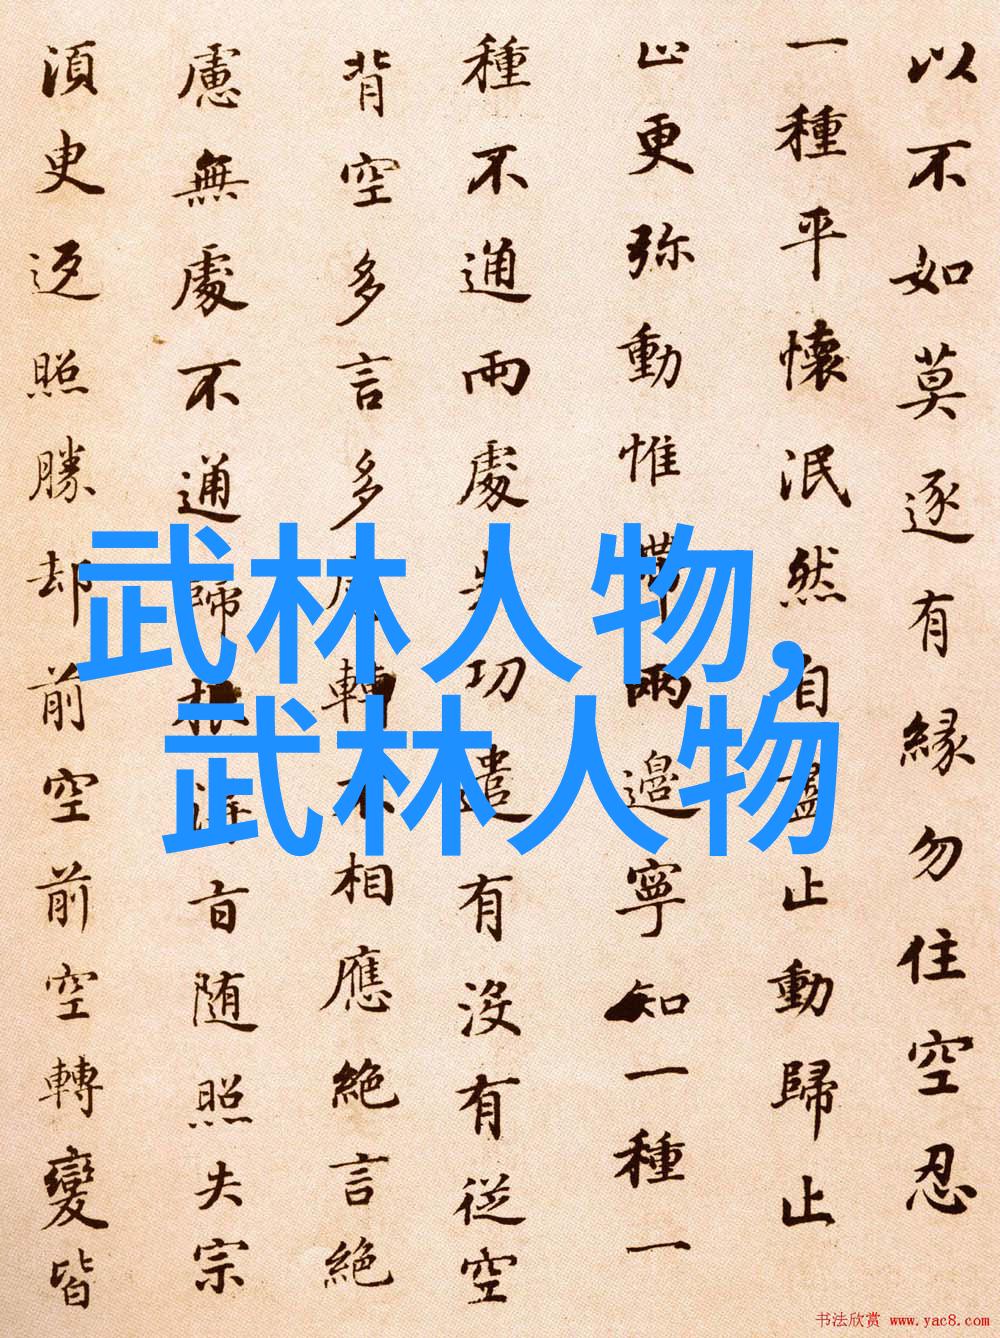 以不如莫逐有緣勿住空忍
一種平懷泯然自盡止動歸止
止更弥動惟滯兩邊寧知一種一
種不通兩處功遣有沒有從空
背空多言多轉不相應絕言絕
慮無處不通歸根旨随照失宗
湏史返照勝却前空前空轉變皆
武林人物,
武林人物
书法欣赏 www.yac8.com